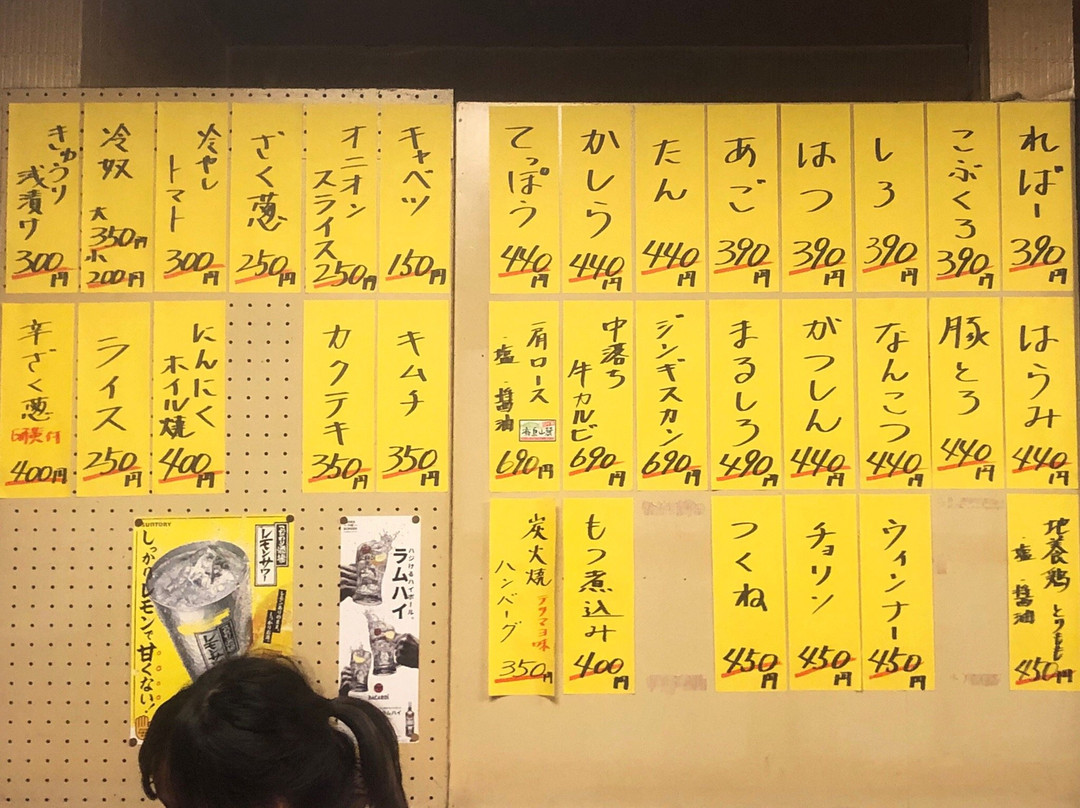 ればー
390円
こぶくろ
390円
しろ
390円
はつ
390円
あご
390円
たん
440円
かしら
440円
てっぽう
440円
はらみ
440円
豚とろ
440円
なんこつ
440円
がつしん
440円
まるしろ
490円
ジンギスカン
690円
中落ち
牛カルビ
690円
肩ロース
塩・醤油
690円
地養鶏 とりもも
塩・醤油
450円
ウィンナー
450円
チョリソ
450円
つくね
450円
もつ煮込み
400円
炭火焼
ハンバーグ
350円
キャベツ
150円
オニオン
スライス
250円
ざく葱
250円
冷やし
トマト
300円
冷奴
大
350円
小
200円
きゅうり
浅漬け
300円
キムチ
350円
カクテキ
350円
にんにく
ホイル焼
400円
ライス
250円
辛ざく葱
400円
SUNTORY
レモンサワー
しっかりレモンで甘くない!
ハジけるハイボール、
ラムハイ
BACARDI